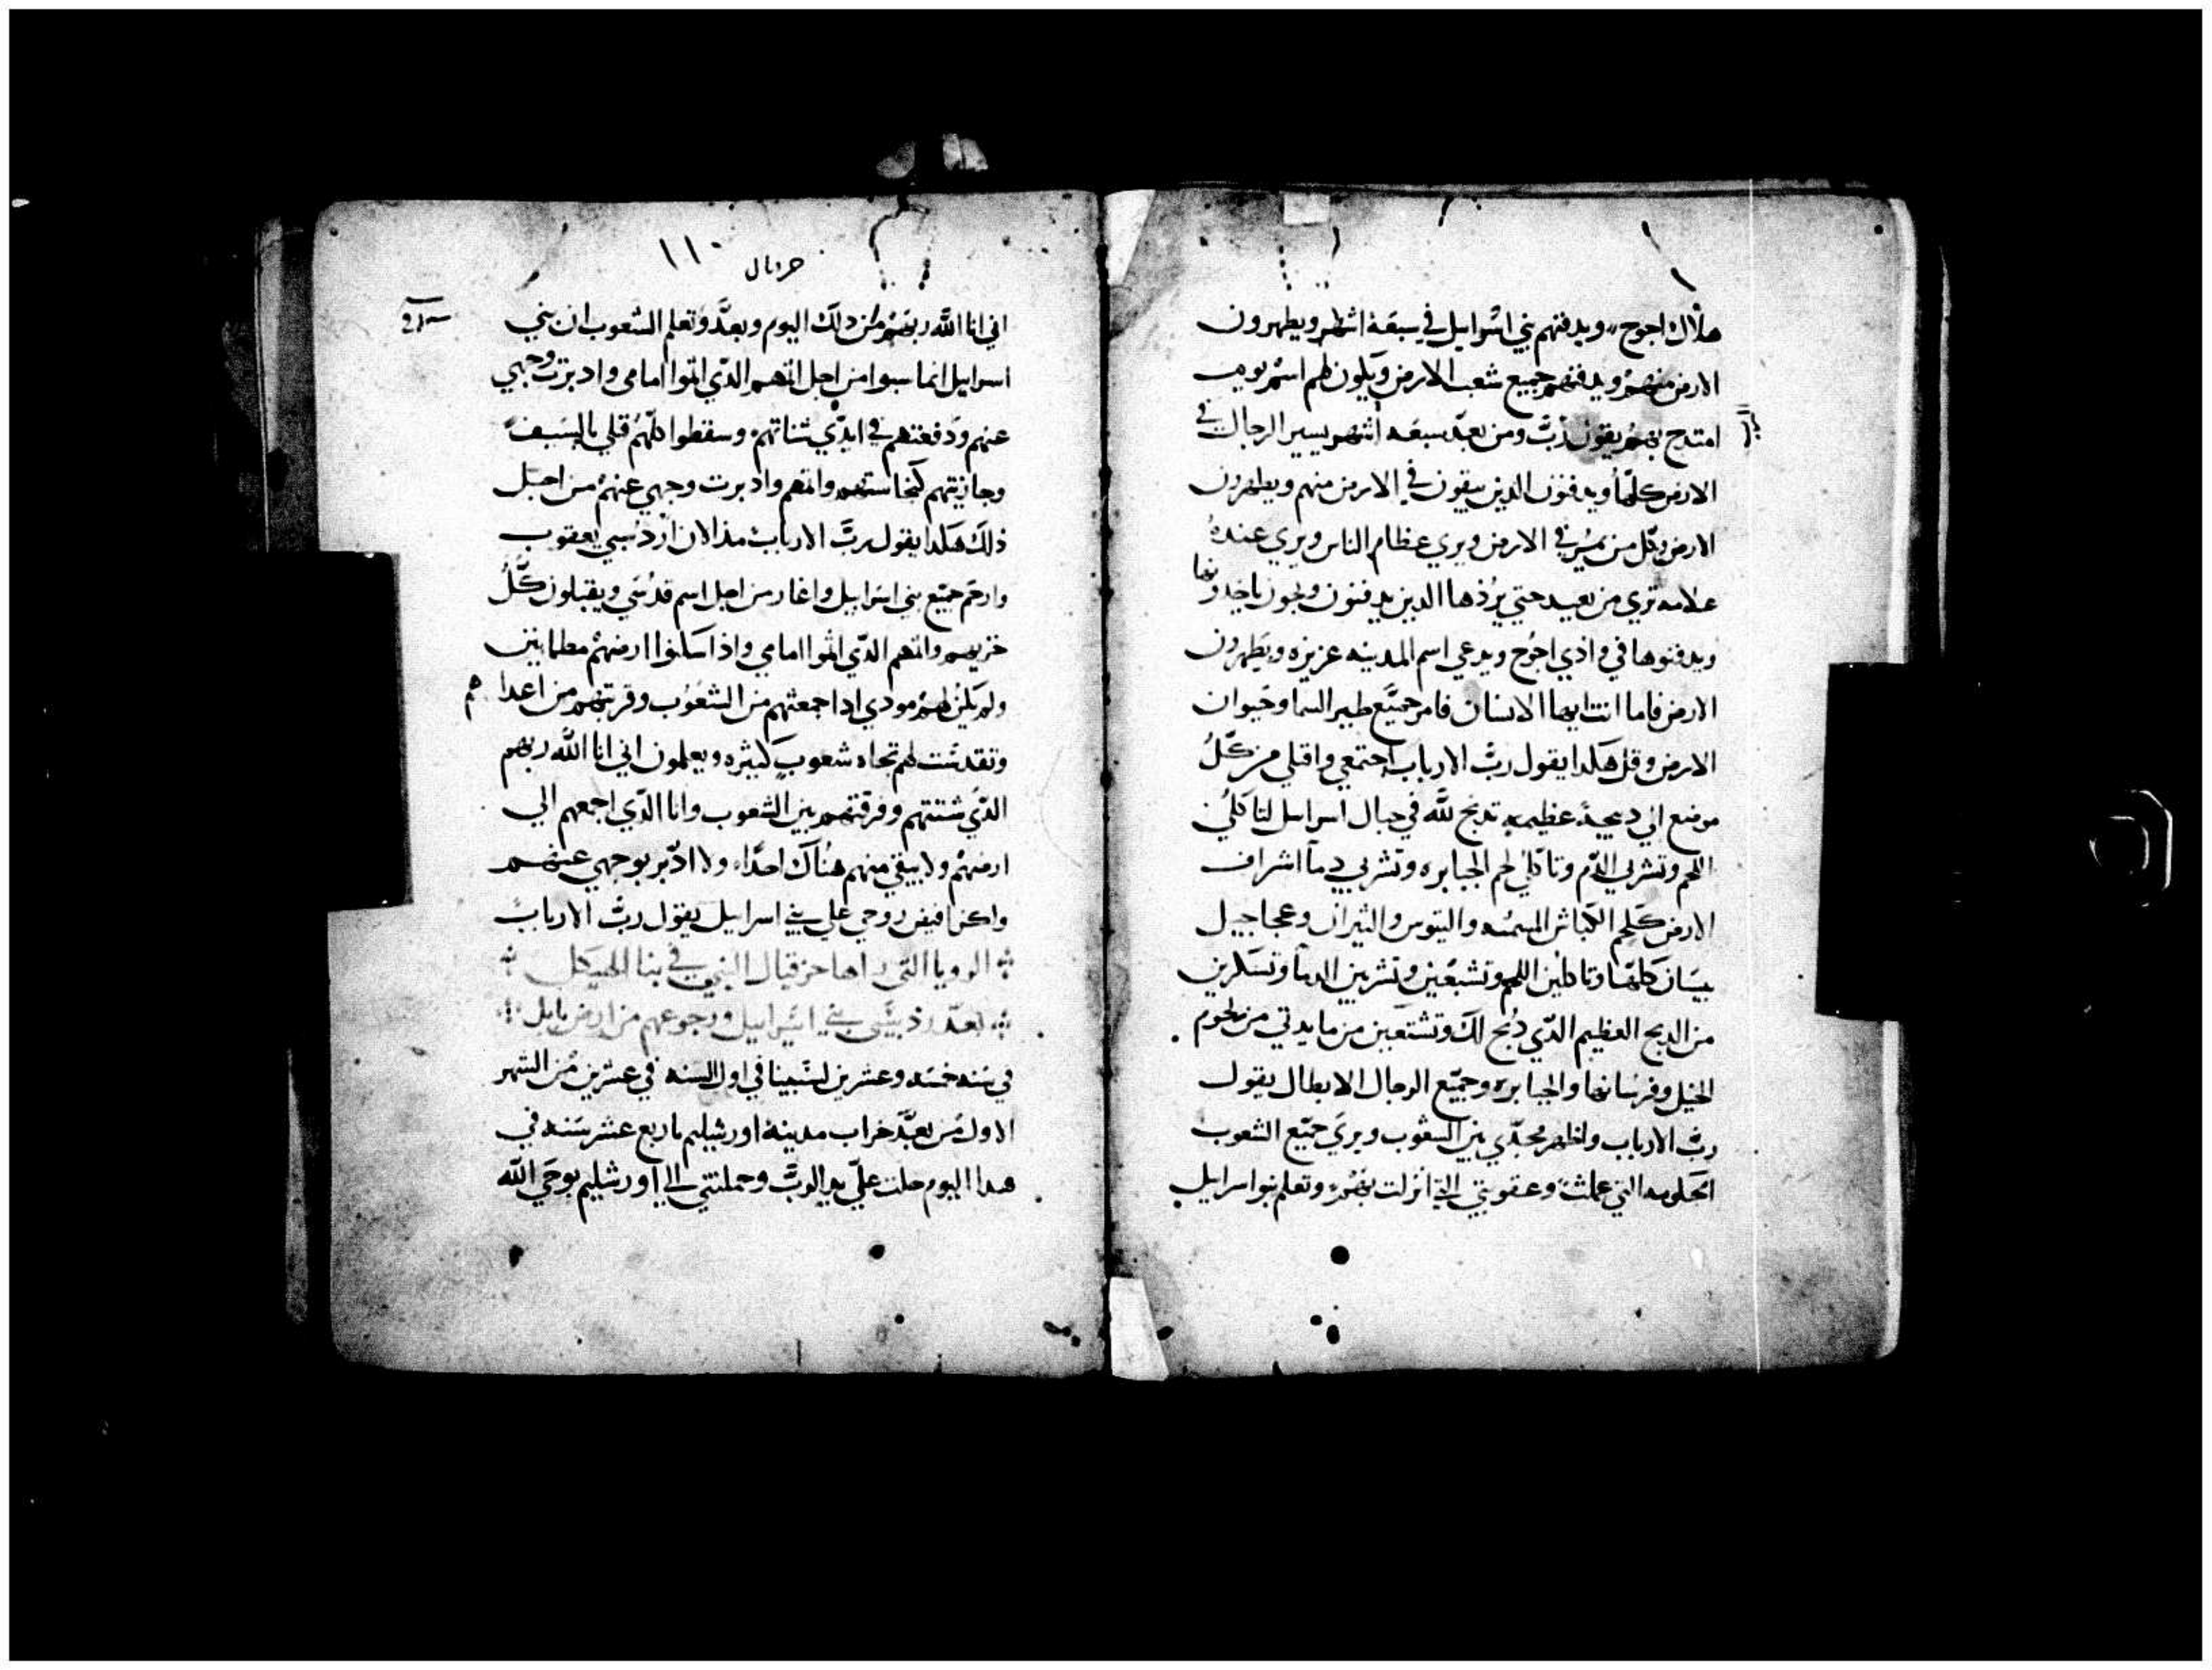 هلاك اجوج ويدفنهم بني اسرايل في سبعة اشهر ويطهرون
الارض منهم ويدفنهم جميع شعب الارض ويكون لهم اسم يوم
امتدح بهم يقول رب ومن بعد سبعه اشهر يسير الرجال في
الارض كلها ويدفنون الدين يبقون في الارض منهم ويطهرون
الارض وكل من يمر في الارض ويري عظام الناس ويري عنده
علامه تري من بعيد حتي الدين يدفنون
ويدفنوها في وادي اجوج ويدعي اسم المدينه عزيزه ويطهرون
الارض فاما انت ايها الانسان فامر جميع طير السما وحيوان
الارض وقل هكدا يقول رب الارباب اجتمعي واقبلي من كل
موضع الي دبيحة عظيمه تدبح لله في جبال اسرايل لتاكلي
اللحم وتشربي الدم وتاكلي لحم الجبابره وتشربي دما اشراف
الارض كلحم الكباش المسمنه والتيوس والثيران وعجاجيل
بيسان كلها وتاكلين اللحم وتشبعين وتشربين الدما وتسكرين
من الدبح العظيم الدي دبح لك وتشبعين من مايدتي من لحوم
الخيل وفرسانها والجبابره وجميع الرجال الابطال يقول
رب الارباب واظهر مجدي بين الشعوب ويري جميع الشعوب
الحكومه التي عملت وعقوبتي التي انزلت بهم وتعلم بنو اسرايل
حزقيال ١١٠
اني انا الله ربهم من دلك اليوم وبعد وتعلم الشعوب ان بني
اسرايل انما سبوا من اجل اثمهم الدي اتوا امامي وادبرت وجهي
عنهم ودفعتهم في ايدي شناتهم وسقطوا كلهم قتلي بالسيف
وجازيتهم كنجاستهم واثمهم وادبرت وجهي عنهم من اجل
ذلك هكدا يقول رب الارباب مند الان ارد سبي يعقوب
وارحم جميع بني اسرايل واغار من اجل اسم قدسي ويقبلون كل
خزيهم واثمهم الدي اثموا امامي واذا سكنوا ارضهم مطمانين
ولم يكن لهم مودي ادا جمعتهم من الشعوب وقربتهم من اعداهم
وتقدست لهم تجاه شعوب كثيره ويعلمون اني انا الله ربهم
الدي شتتهم وفرقتهم بين الشعوب وانا الدي اجمعهم الي
ارضهم ولا يبقي منهم هناك احدا ولا ادبر بوجهي عنهم
ولكن افيض روحي علي بني اسرايل يقول رب الارباب
الرويا التي راها حزقيال النبي في بنا الهيكل
بعد رد سبي بني اسرايل ورجوعهم من ارض بابل
في سنه خمسه وعشرين لسبينا في اول السنه في عشرين من الشهر
الاول من بعد خراب مدينة اورشليم باربع عشر سنه في
هدا اليوم حلت علي يد الرب وحملتني الي اورشليم بوحي الله